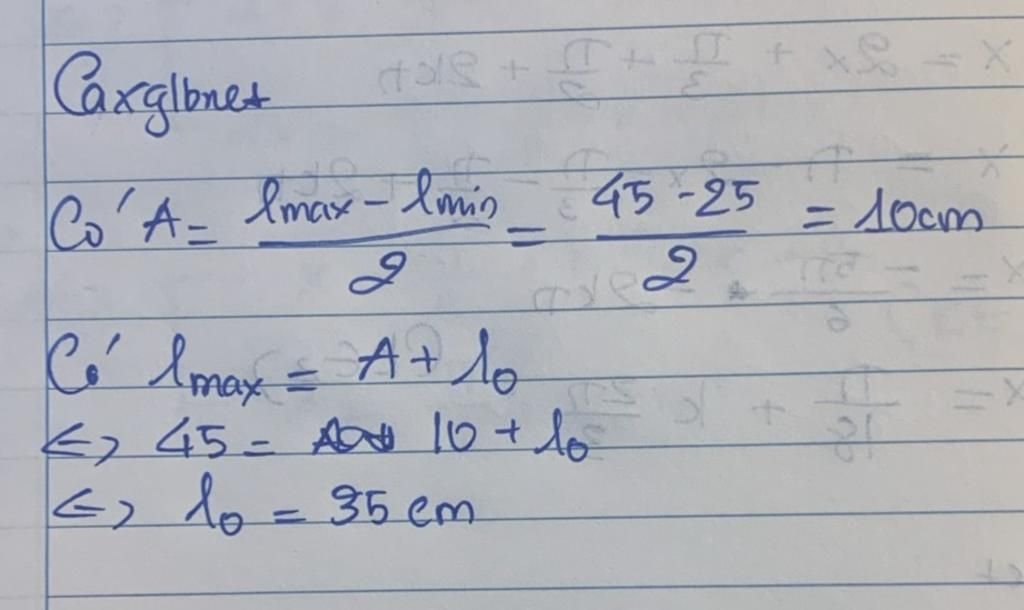 Caxglbnet
Có A = (lmax - lmin)/2 = (45 - 25)/2 = 10cm
Có lmax = A + l0
<=> 45 = 10 + l0
<=> l0 = 35 cm